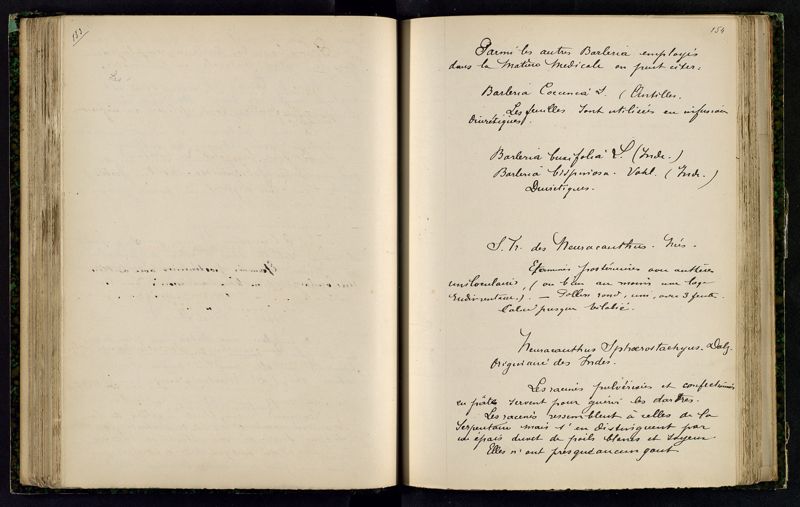 153
154
Parmi les autres Barleria employés
dans la Matière Medicale on peut citer:
Barleria Coccinea L. (Antilles.
Les feuilles sont utilisées en infusions
diurétiques.
Barleria buxifolia L (Inde.)
Barleria bispinosa. Vahl. (Inde.)
Diurétiques.
S. Tr. des Neuracanthus. Nées.
Etamines postérieures avec anthères
uniloculaires, (ou bien au moins une loge
rudimentaire). — Pollen rond, uni, avec 3 fentes.
Calice presque bilabié.
Neuracanthus Sphaerostachyus. Dalz.
Originaire des Indes.
Les racines pulvérisées et confectionnées
en pâte servent pour guérir les dartres.
Les racines ressemblent à celles de la
Serpentaire mais s'en distinguent par
un épais duvet de poils blancs et soyeux.
Elles n'ont presque aucun goût